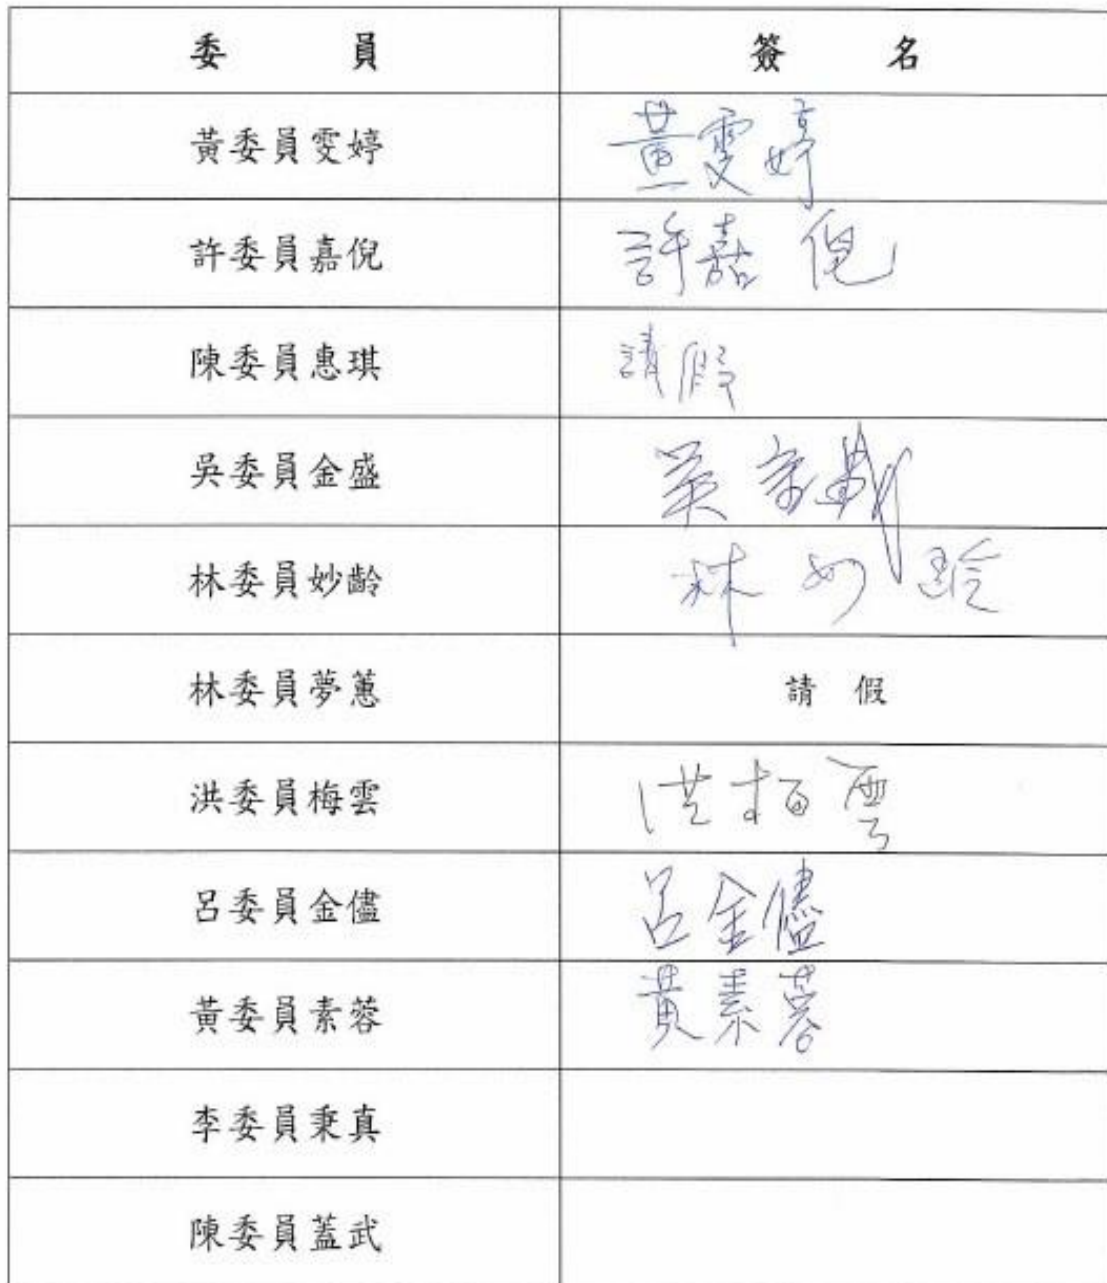 委 員 簽 名
黃委員雯婷 黃雯婷
許委員嘉倪 許嘉倪
陳委員惠琪 請假
吳委員金盛 吳
林委員妙齡 林妙齡
林委員夢蕙 請 假
洪委員梅雲 洪梅雲
呂委員金儘 呂金儘
黃委員素蓉 黃素蓉
李委員秉真
陳委員蓋武